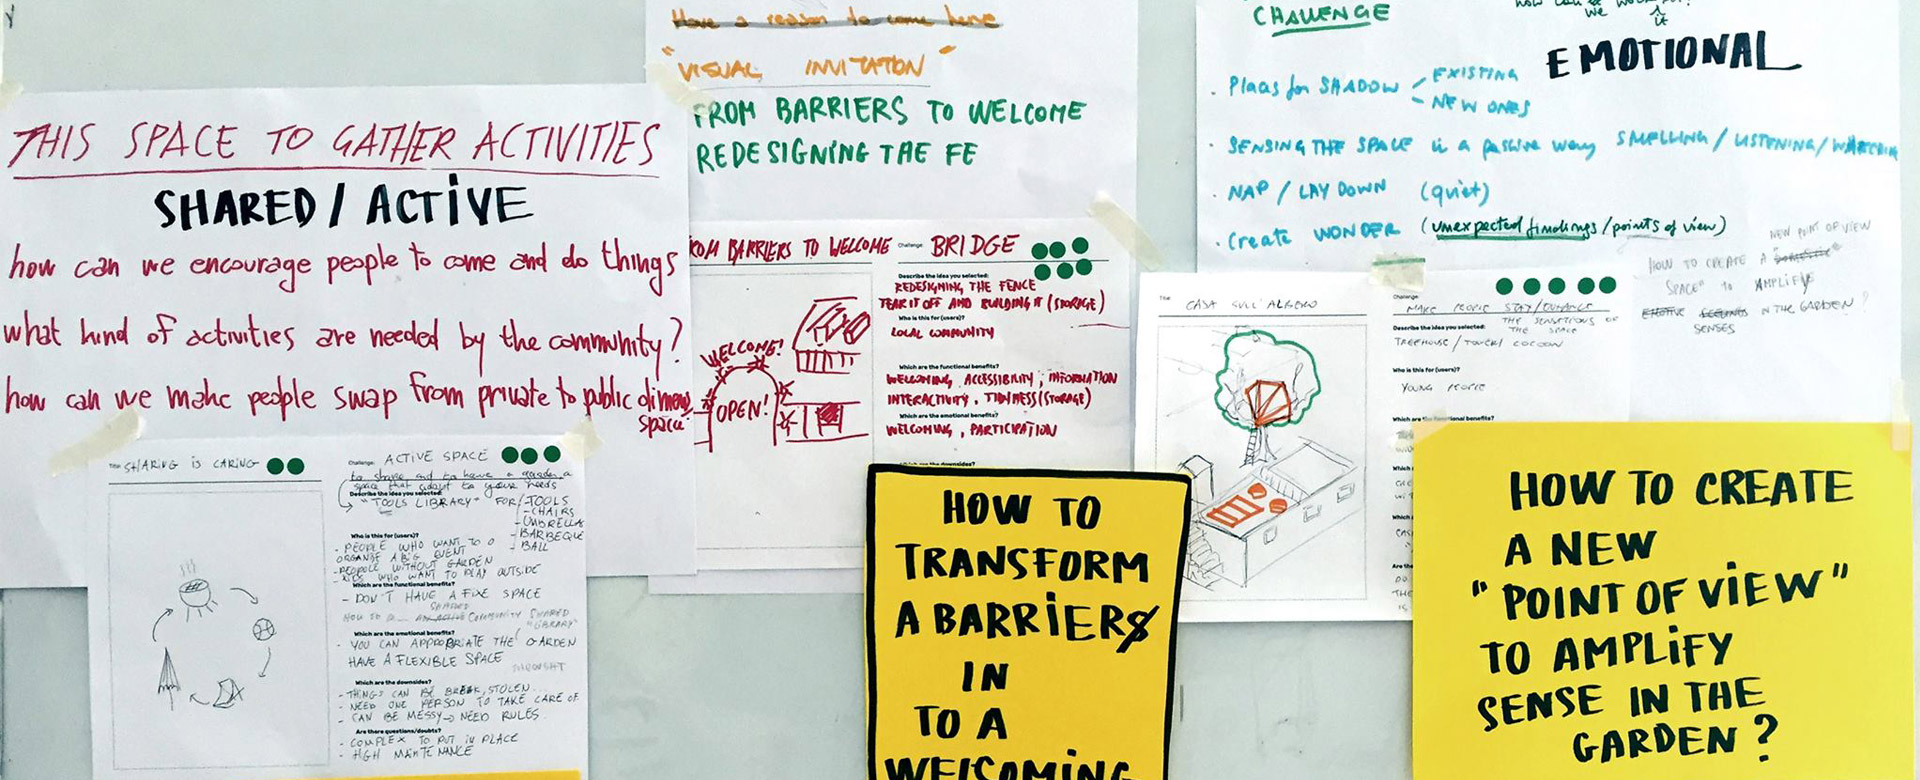 THIS SPACE TO GATHER ACTIVITIES
SHARED / ACTIVE
how can we encourage people to come and do things
what kind of activities are needed by the community?
how can we make people swap from private to public dimens
space
Title: SHARING IS CARING
Challenge: ACTIVE SPACE
to share and to have a garden a
space that adapt to your needs
Describe the idea you selected:
"TOOLS LIBRARY" FOR - TOOLS
- CHAIRS
- UMBRELLA
- BARBEQUE
- BALL
Who is this for (users)?
- PEOPLE WHO WANT TO O
ORGANISE A BIG EVENT
- PEOPLE WITHOUT GARDEN
- KIDS WHO WANT TO PLAY OUTSIDE
Which are the functional benefits?
- DON'T HAVE A FIXE SPACE
SHARED
HOW TO COMMUNITY SHARED
"LIBRARY"
Which are the emotional benefits?
- YOU CAN APPROPRIATE THE GARDEN
HAVE A FLEXIBLE SPACE
THROUGHT
Which are the downsides?
- THINGS CAN BE BREAK, STOLEN...
- NEED ONE PERSON TO TAKE CARE OF
- CAN BE MESSY → NEED RULES.
Are there questions/doubts?
- COMPLEX TO PUT IN PLACE
- HIGH MAINTENANCE
Have a reason to come here
"VISUAL INVITATION"
FROM BARRIERS TO WELCOME
REDESIGNING THE FE
ROM BARRIERS TO WELCOME
Challenge: BRIDGE
Describe the idea you selected:
REDESIGNING THE FENCE
TEAR IT OFF AND BUILDING IT (STORAGE)
Who is this for (users)?
LOCAL COMMUNITY
Which are the functional benefits?
WELCOMING, ACCESSIBILITY, INFORMATION
INTERACTIVITY, TIDINESS (STORAGE)
Which are the emotional benefits?
WELCOMING, PARTICIPATION
Which are the downsides?
WELCOME!
OPEN!
HOW TO
TRANSFORM
A BARRIERS
IN
TO A
WELCOMING
CHALLENGE
how can
we
it
EMOTIONAL
. Places for SHADOW - EXISTING
- NEW ONES
. SENSING THE SPACE in a passive way SMELLING / LISTENING /
. NAP / LAY DOWN (quiet)
. Create WONDER (unexpected findings / points of view)
NEW POINT OF VIEW
HOW TO CREATE A "DOMESTIC
SPACE" TO AMPLIFY
EMOTIVE FEELINGS IN THE GARDEN?
SENSES
Title: CASA SULL'ALBERO
Challenge:
MAKE PEOPLE STAY/ENHANCE
Describe the idea you selected: THE SENSATIONS OF
THE SPACE
TREEHOUSE / TOUCH / COCOON
Who is this for (users)?
YOUNG PEOPLE
Which are the functional benefits?
HOW TO CREATE
A NEW
"POINT OF VIEW"
TO AMPLIFY
SENSE IN THE
GARDEN?